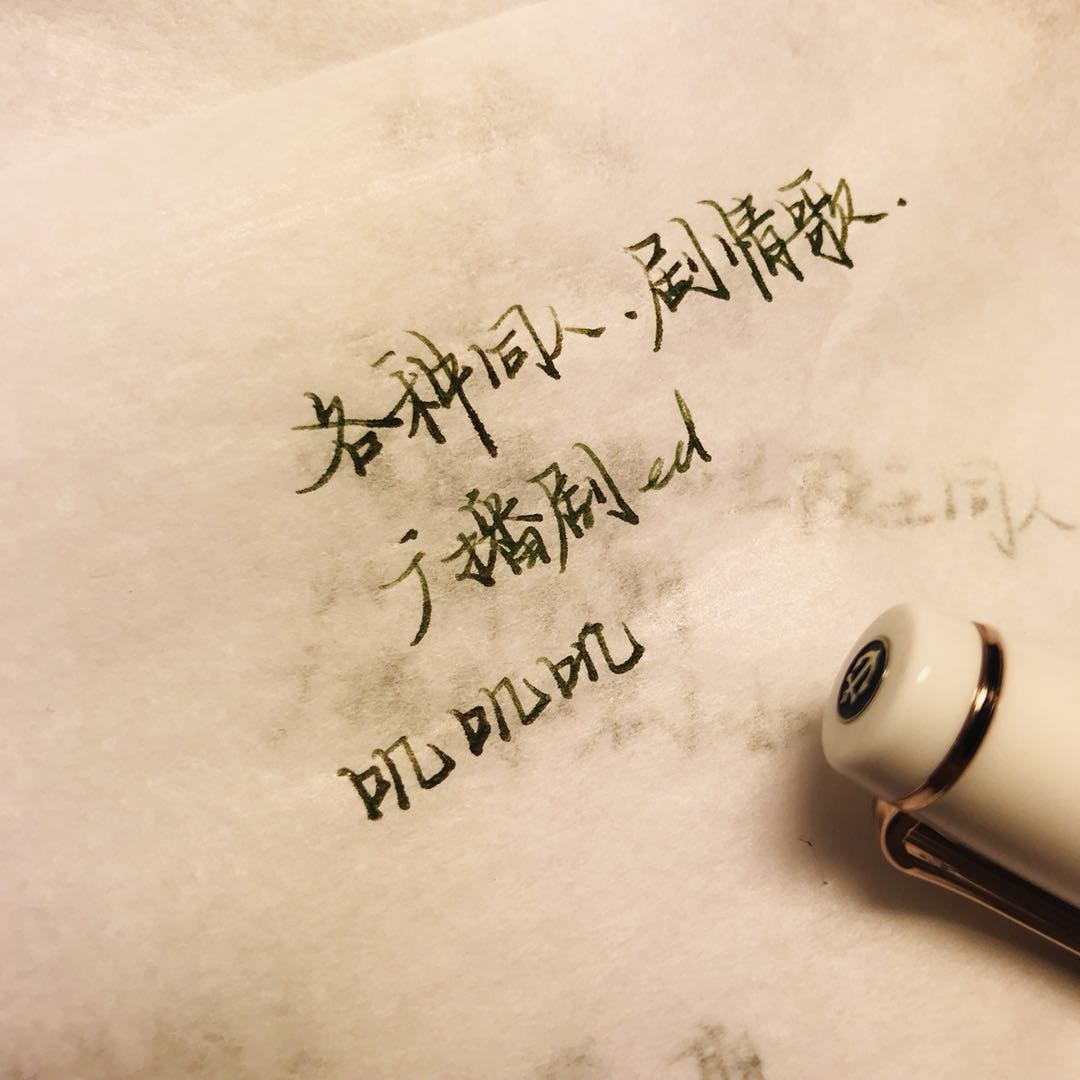 各种同人.剧情歌.
广播剧ed
叽叽叽
同人